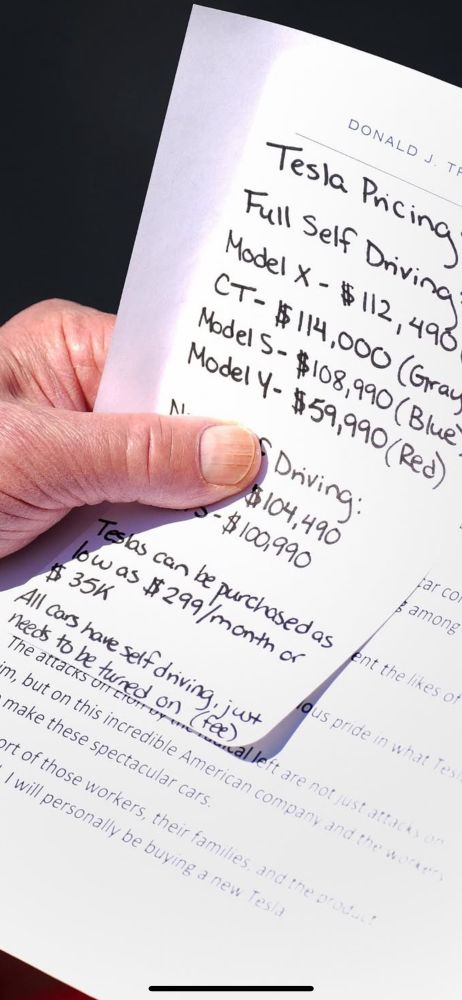 DONALD J.
Tesla Pricing
Full Self Driving:
Model X - $112,490
CT- $114,000 (Gray
Model S- $108,990 (Blue
Model Y- $59,990 (Red)
Driving:
$104,490
S - $100,990
Teslas can be purchased as
low as $299/month or
$35K
All cars have self driving, just
needs to be turned on (fee)
among
the likes of
pride in what
The attacks on left are not just attacks on
but on this incredible American company and the workers
make these spectacular cars.
of those workers, their families, and the product
I will personally be buying a new Tesla